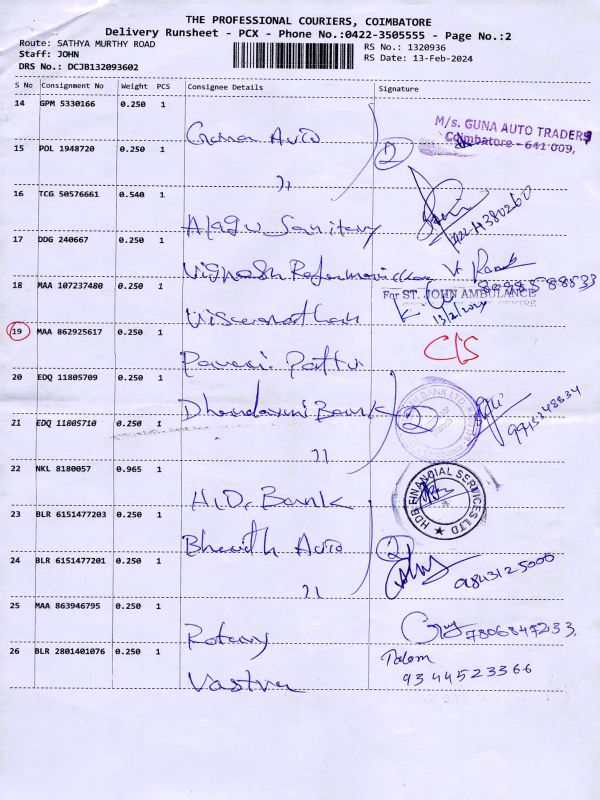 THE PROFESSIONAL COURIERS, COIMBATORE
Delivery Runsheet - PCX - Phone No.:0422-3505555 - Page No.:2
Route: SATHYA MURTHY ROAD
Staff: JOHN
DRS No.: DCJB132093602
RS No.: 1320936
RS Date: 13-Feb-2024
S No Consignment No Weight PCS Consignee Details Signature
14 GPM 5330166 0.250 1
Guna Auto 2
M/s. GUNA AUTO TRADERS
Coimbatore - 641 009,
15 POL 1948720 0.250 1
"
16 TCG 50576661 0.540 1
Alagu Sanitary
17 DDG 240667 0.250 1
Vignesh
18 MAA 107237480 0.250 1
Viswanathan
For ST. JOHN AMBULANCE
CENTRE
13/2/2024
19 MAA 862925617 0.250 1
Pavani Pattu
C/S
20 EDQ 11805709 0.250 1
Bank 2
21 EDQ 11805710 0.250 1
"
22 NKL 8180057 0.965 1
Bank
HDB FINANCIAL SERVICES LTD
23 BLR 6151477203 0.250 1
Auto 2
24 BLR 6151477201 0.250 1
"
9843125000
25 MAA 863946795 0.250 1
Rotary
7806847233
26 BLR 2801401076 0.250 1
Vastra
9344523366